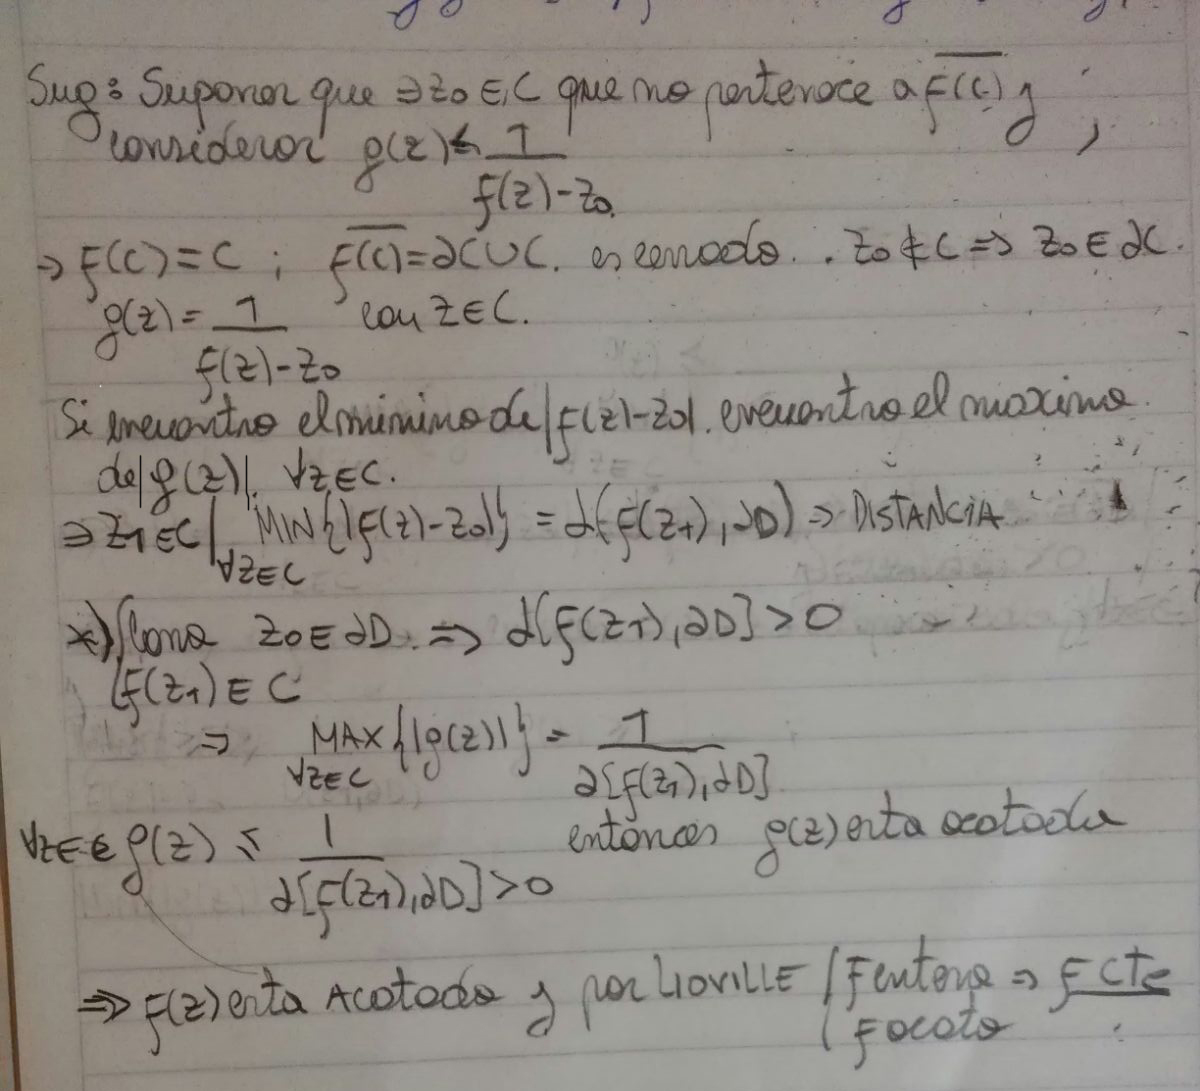 Sug: Suponer que ∃ z₀ ∈ C que no pertenece a \overline{f(C)} y
considerar g(z) = 1
f(z)-z₀
⇒ f(C) = C ; \overline{f(C)} = ∂C ∪ C. es cerrado. . z₀ ∉ C ⇒ z₀ ∈ ∂C.
g(z) = 1 con z ∈ C.
f(z)-z₀
Si encuentro el minimo de |f(z)-z₀|. encuentro el maximo
de |g(z)|. ∀z ∈ C.
⇒ z₁ ∈ C | MIN{|f(z)-z₀|} = d(f(z₁), ∂D) ⇒ DISTANCIA
∀z ∈ C
*) z₀ ∈ ∂D. ⇒ d[f(z₁), ∂D] > 0
f(z₁) ∈ C
⇒ MAX{|g(z)|} = 1
∀z ∈ C d[f(z₁), ∂D]
∀z ∈ C g(z) ≤ 1 entonces g(z) esta acotada
d[f(z₁), ∂D] > 0
⇒ f(z) esta Acotada y por LIOVILLE / F entera ⇒ F CTE
F acota